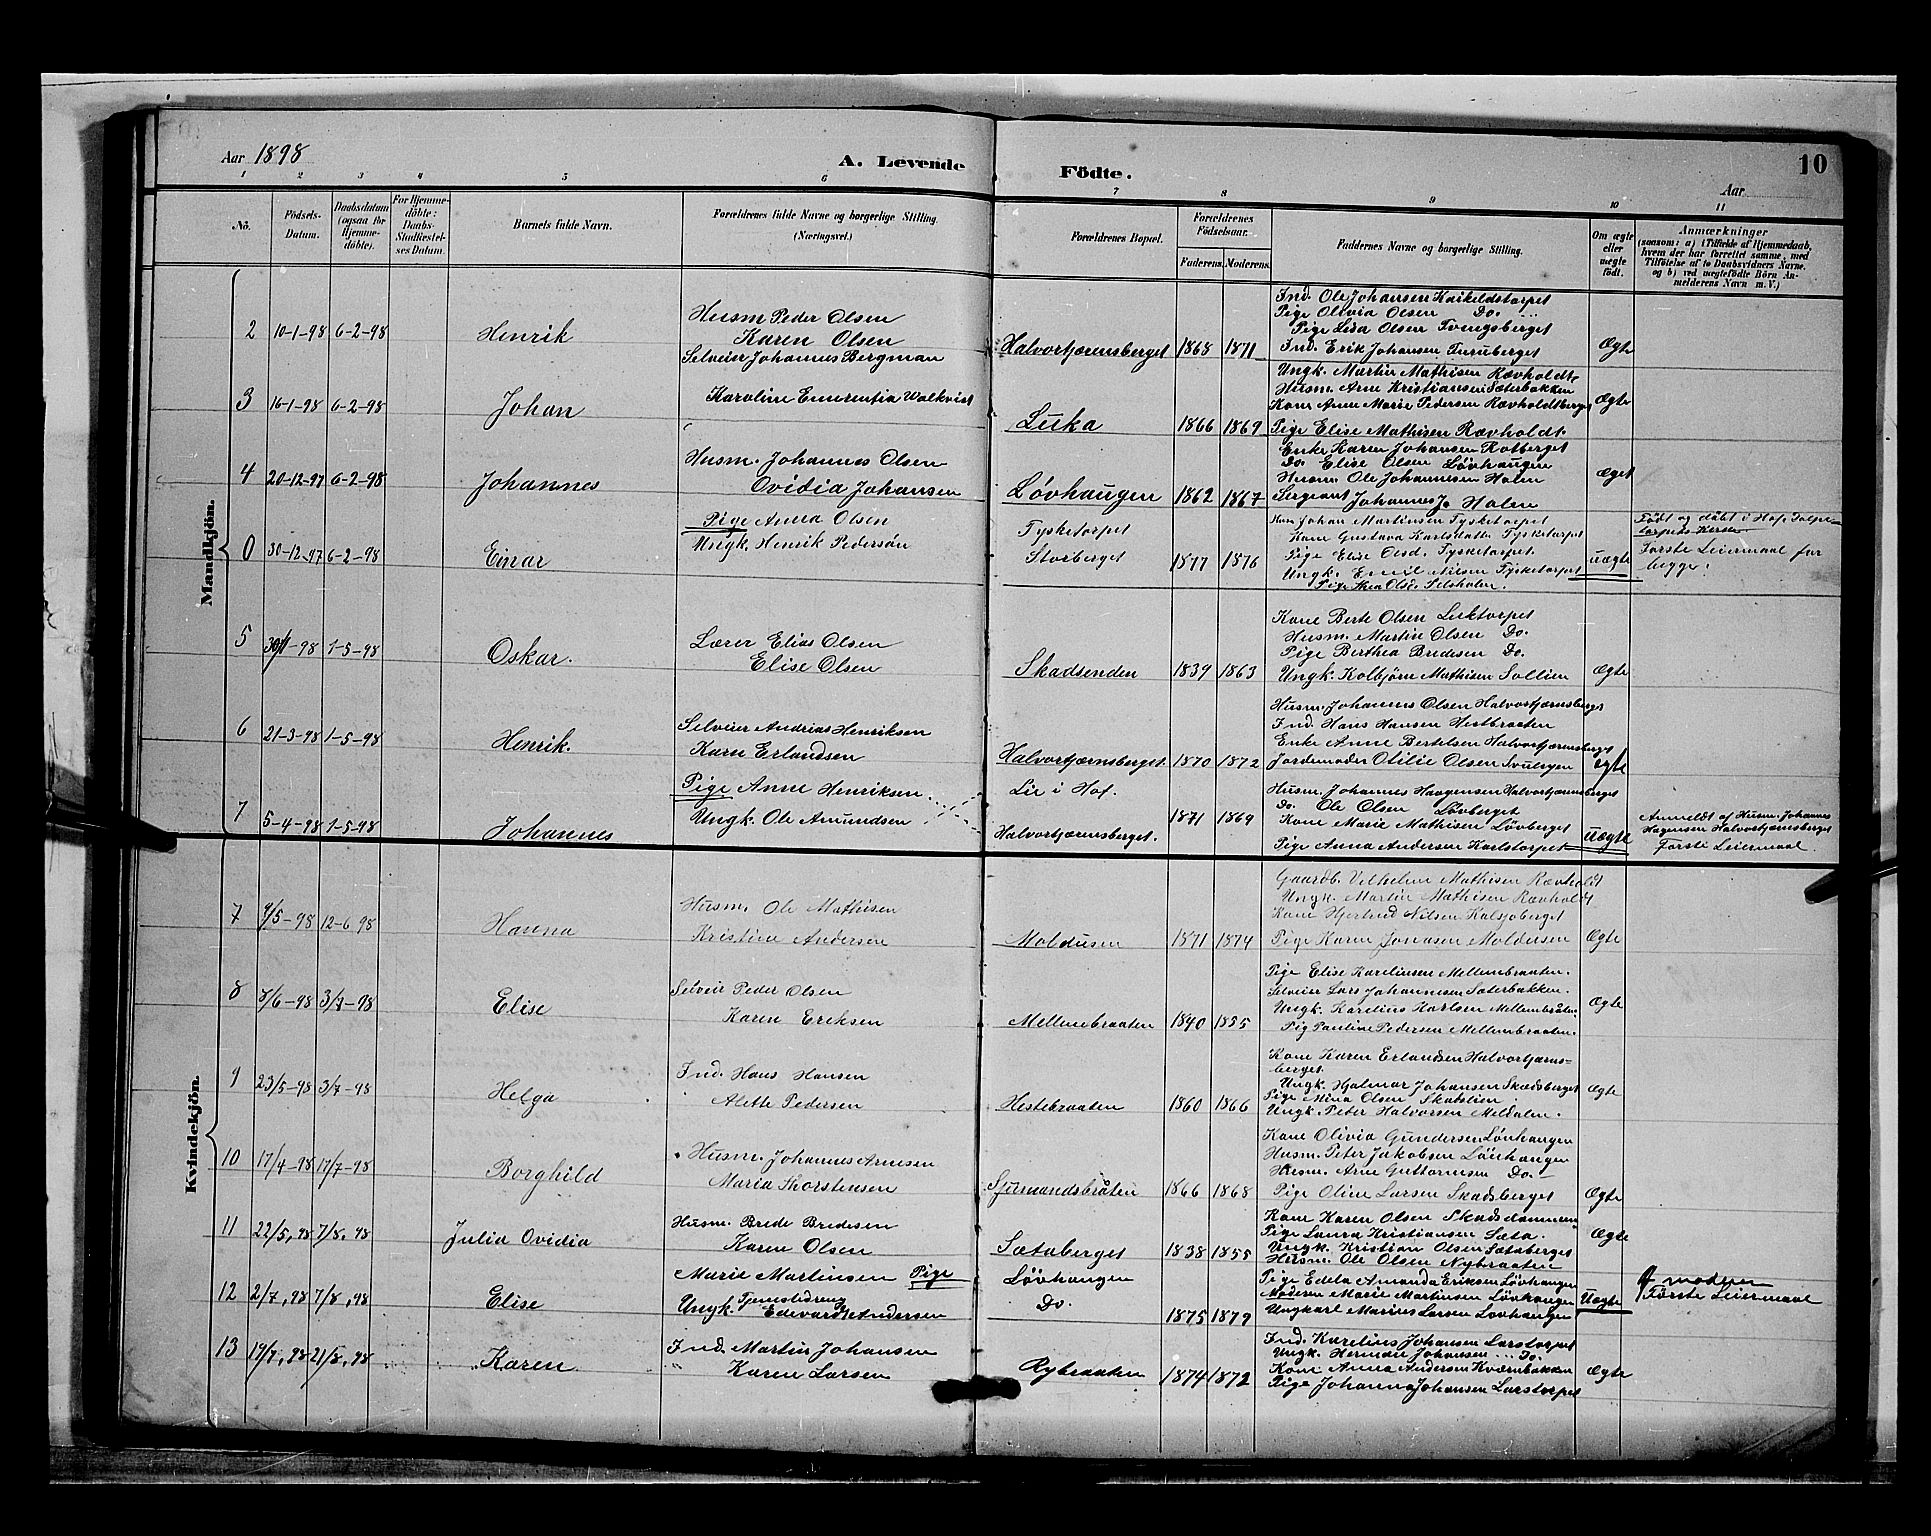 Aar 1898
A. Levende Födte.
10
Aar
1 2 3 4 5 6 7 8 9 10 11
Nö.
Födsels-Datum.
Daabsdatum (ogsaa for Hjemmedöbte).
For Hjemmedöbte: Daabs-Stadfæstelses Datum.
Barnets fulde Navn.
Forældrenes fulde Navne og borgerlige Stilling. (Næringsvei.)
Forældrenes Bopæl.
Forældrenes Födselsaar.
Faderens. Moderens.
Faddernes Navne og borgerlige Stilling.
Om ægte eller uægte födt.
Anmærkninger
(saasom: a) i Tilfælde af Hjemmedaab, hvem der har forrettet samme, med Tilföielse af to Daabsvidners Navne. og b) ved uægtefödte Börn Anmelderens Navn m. V.)
Mandkjön.
2 10-1-98 6-2-98 Henrik
Husm Peder Olsen
Karen Olsen
Halvortjærnsberget 1868 1871
Ind. Ole Johansen Kaikeldstorpet
Pige Olivia Olsen Do.
Pige Lisa Olsen Tvingsberget
Ind. Erik Johansen Furuberget
Ægte
3 16-1-98 6-2-98 Johan
Selveier Johannes Bergman
Karoline Emerentia Walkvist
Luka 1866 1869
Ungk. Martin Mathisen Rævholdt
Husm. Arne Kristiansen Sæterbakken
Kone Anne Marie Pedersen Rævholdtsberget
Pige Elise Mathisen Rævholdt.
Ægte
4 20-12-97 6-2-98 Johannes
Husm. Johannes Olsen
Ovidia Johansen
Lövhaugen 1862 1867
Enke Karen Johansen Rotberget
Do. Elise Olsen Lövhaugen
Husm. Ole Johannesen Holen
Sergeant Johannes J. Holen
Æget
0 30-12-97 6-2-98 Einar
Pige Anna Olsen
Ungk. Henrik Pedersen
Tysketorpet
Storberget 1877 1876
Hus. Johan Martinsen Tysketorpet
Kone Gustava Karlsdatter Tysketorpet
Pige Elise Olsd. Tysketorpet.
Ungk. Emil Nilsen Tysketorpet
Pige Thea Olsd. Selsholen.
uægte
Født og döbt i Hof,
Første Leiermaal for begge.
5 30/1-98 1-5-98 Oskar.
Lærer Elias Olsen
Elise Olsen
Skadsenden 1839 1863
Kone Berte Olsen Liktorpet
Husm. Martin Olsen Do.
Pige Berthea Bredesen Do.
Ungk. Kolbjørn Mathisen Sollien
Ægte
6 21-3-98 1-5-98 Henrik.
Selveier Andreas Henriksen
Karen Erlandsen
Halvortjærnsberget. 1870 1872
Husm. Johannes Olsen Halvortjærnsberget
Ind. Hans Hansen Hestbraaten
Enke Anne Bertelsen Halvortjærnsberget
Jordemoder Otilie Olsen
Ægte
7 5-4-98 1-5-98 Johannes
Pige Anne Henriksen.
Ungk. Ole Amundsen
Lie i Hof.
Halvortjærnsberget. 1871 1869
Husm. Johannes Haagensen Halvortjærnsberget
Do. Ole Olsen Lövberget
Kone Marie Mathisen Lövberget
Pige Anna Andersen Karlstorpet
uægte
Anmeldt af Husm. Johannes Hagensen Halvortjærnsberget
Første Leiermaal.
Kvindekjön.
7 9/5-98 12-6 98 Hanna
Husm. Ole Mathisen
Kristina Andersen
Moldusen 1871 1874
Gaardb. Vilhelm Mathisen Rævholdt
Ungk. Martin Mathisen Rævholdt
Kone Gjertrud Nilsen Kalsjoberget
Pige Karen Jonasen Moldusen
Ægte
8 8/6-98 3/7-98 Elise
Selveier Peder Olsen
Karen Eriksen
Mellembraaten 1840 1855
Pige Elise Karelinsen Mellembraaten.
Selveier Lars Johannesen Sæterbakken.
Ungk. Karelius Karlsen Mellembråten
Pig Pauline Pedersen Mellembraaten.
Ægte
9 23/5-98 3/7-98 Helga
Ind. Hans Hansen
Alette Pedersen
Hestebraaten 1860 1866
Kone Karen Erlandsen Halvortjærns-
berget.
Ungk. Hjalmar Johansen Skadsberget
Pige Mina Olsen Skatslien.
Ungk. Peter Halvorsen Meldalen.
Ægte
10 17/4-98 17/7-98 Borghild
Husm. Johannes Arnesen
Maria Thorstensen
Sjurmandsbråten 1866 1868
Kone Olivia Gundersen Lövhaugen
Husm. Peter Jakobsen Lövhaugen
Husm. Arne Guttormsen Do.
Pige Oline Larsen Skadsberget
Ægte
11 22/5, 98 7/8, 98 Julia Ovidia
Husm. Brede Bredesen
Karen Olsen
Sætaberget 1838 1855
Kone Karen Olsen Skadsdammen
Pige Laura Kristiansen Sæta.
Ungk. Kristian Olsen Sætaberget
Husm. Ole Olsen Nybraaten
Ægte
12 2/7, 98 7/8, 98 Elise
Marie Martinsen Pige
Ungk. Tjenestedreng Edevard Andersen
Lövhaugen
Do. 1875 1879
Pige Edela Amanda Eriksen Lövhaugen
Moderen Marie Martinsen Lövhaugen
Ungkarl Marius Larsen Lovhaugen
Uægte
Af moderen
Første Leiermaal
13 19/7, 98 21/8, 98 Karen
Ind. Martin Johansen
Karen Larsen
Rybraaten 1874 1872
Ind. Karelius Johansen Larstorpet
Ungk. Herman Johansen Do.
Kone Anna Andersen Kværnbakken
Pige Johanna Johansen Larstorpet
Ægte